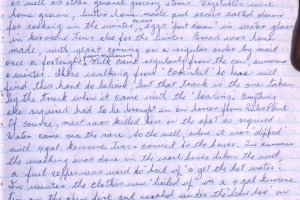 as well as other general grocery items. Vegetables were
home grown, butter home made and excess salted down
for cooking in the winter, eggs "put down" in water glass
in kerosene tins also for the winter. Bread was home
made, with yeast coming on a regular order by mail
once a fortnight. Milk came regularly from the cow, summer
& winter. Those walking from to here will
find this hard to believe, but that track is the one taken
by the truck when it came with the loading. Anything
else required had to be brought in on horses from
Of course, meat was killed here on the spot as required
Water came via the race, to the well, where it was "dipped"
with 4 gal. kerosene tins & carried to the house. In summer
the washing was done in the wash house down the well,
a fuel copper was used to "boil up" & get the hot water.
In winter the clothes were "boiled up" in a 4 gal kerosene
tin on the open fire and washed under the lean to on